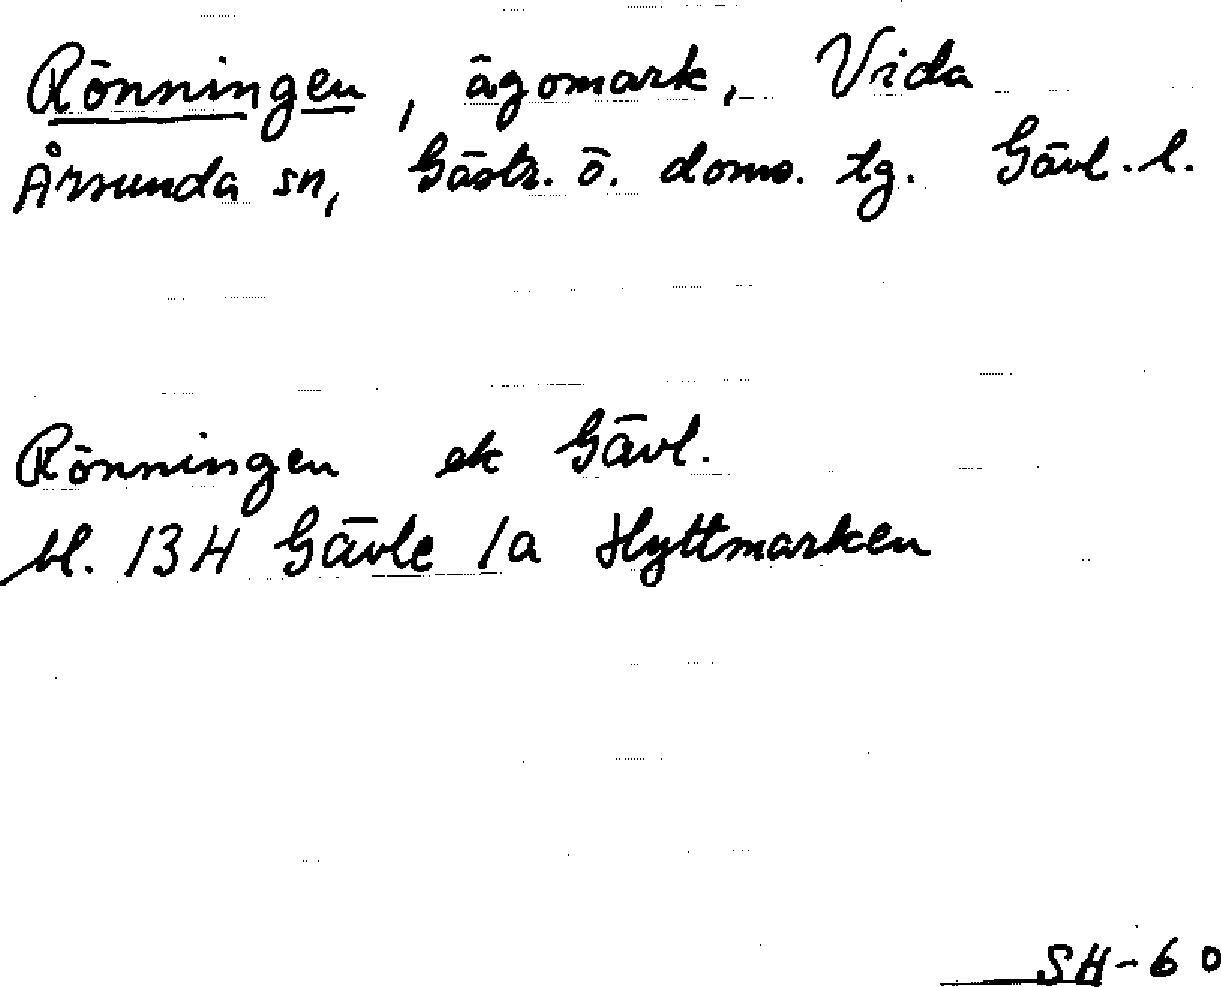 Rönningen, ägomark, Vida
Årsunda sn, Gästr. ö. doms. tg. Gävl. l.
Rönningen ek Gävl.
bl. 13H Gävle 1a Hyttmarken
SH-60